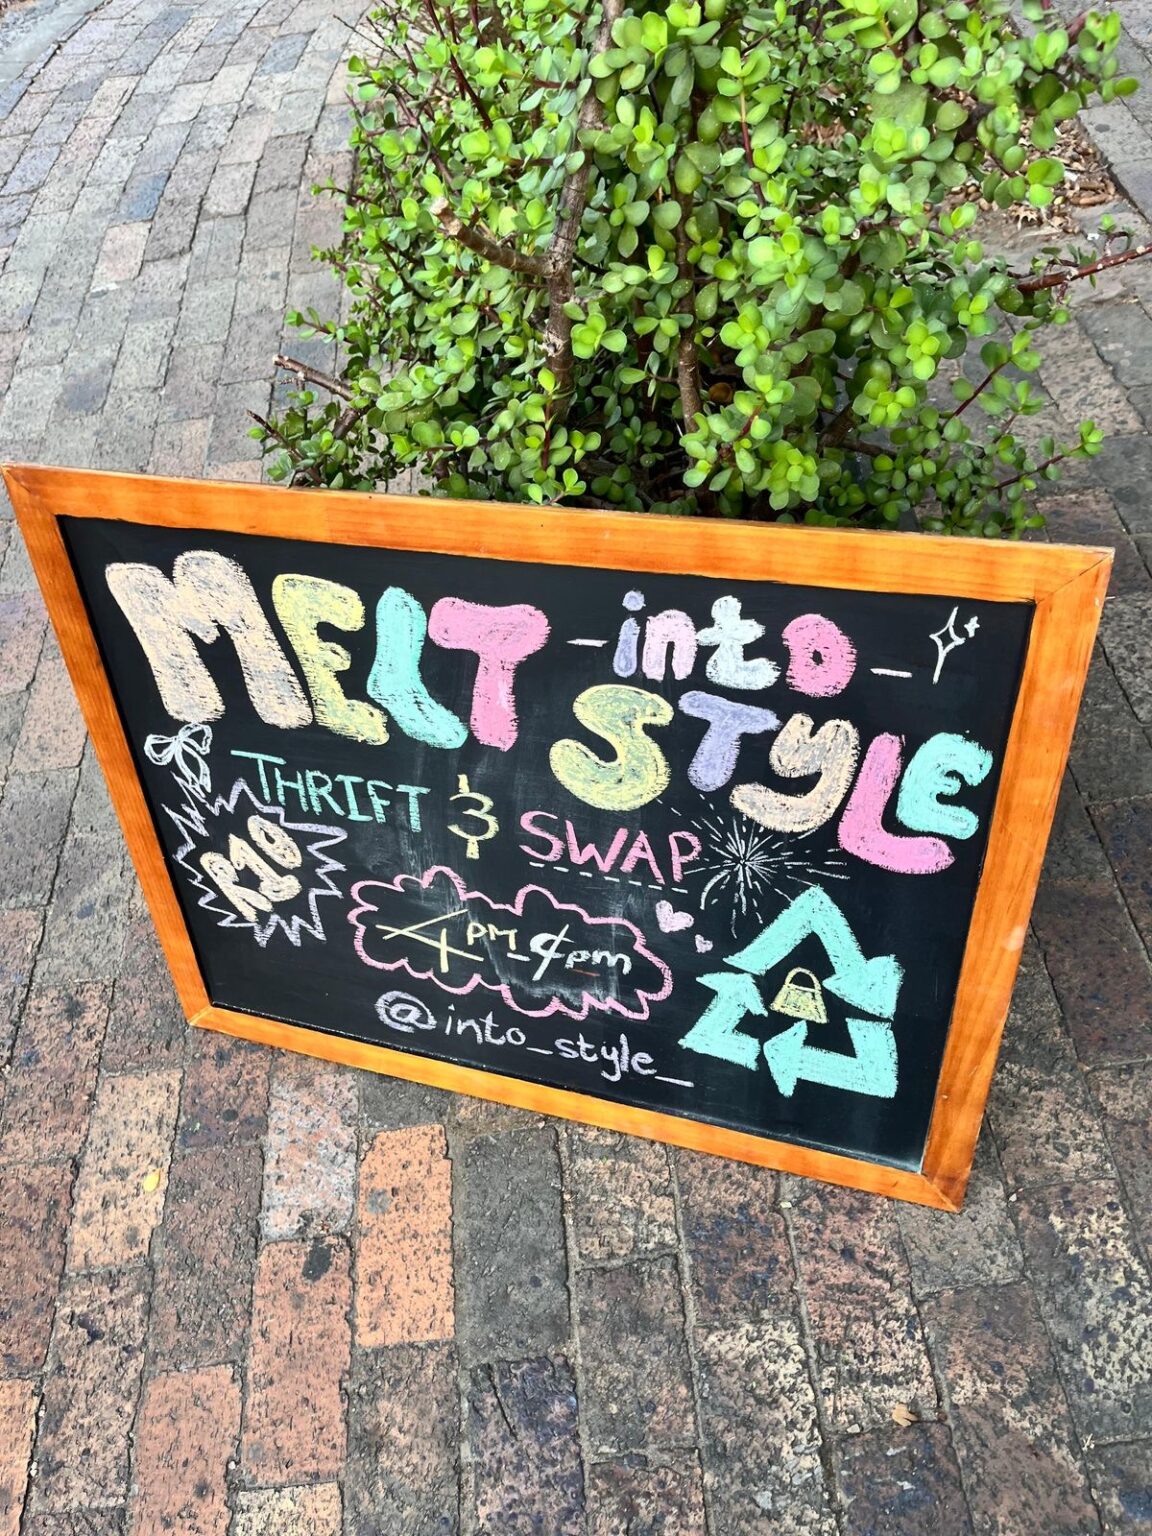 MELT - into -
STYLE
THRIFT & SWAP
R10
4PM - 9pm
@into_style_